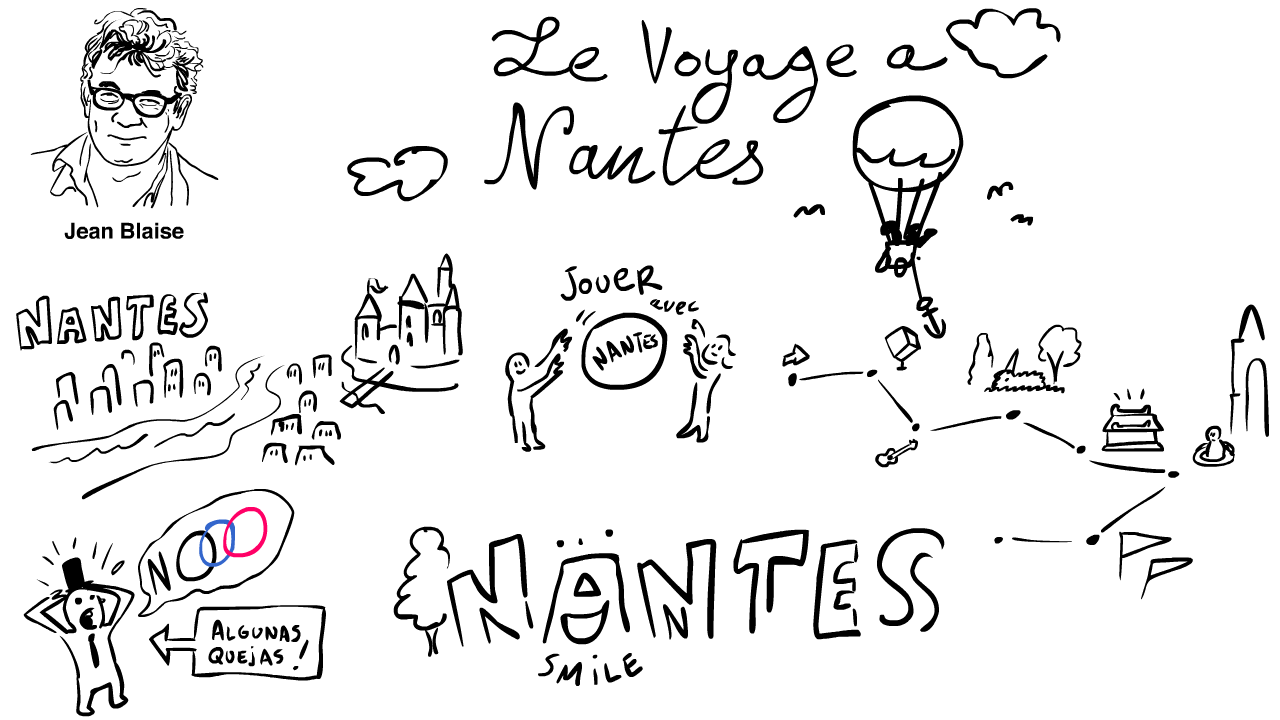 Le Voyage a
Nantes
Jean Blaise
NANTES
JOUER
avec
NANTES
NOOO
ALGUNAS
QUEJAS!
NANTES
SMILE